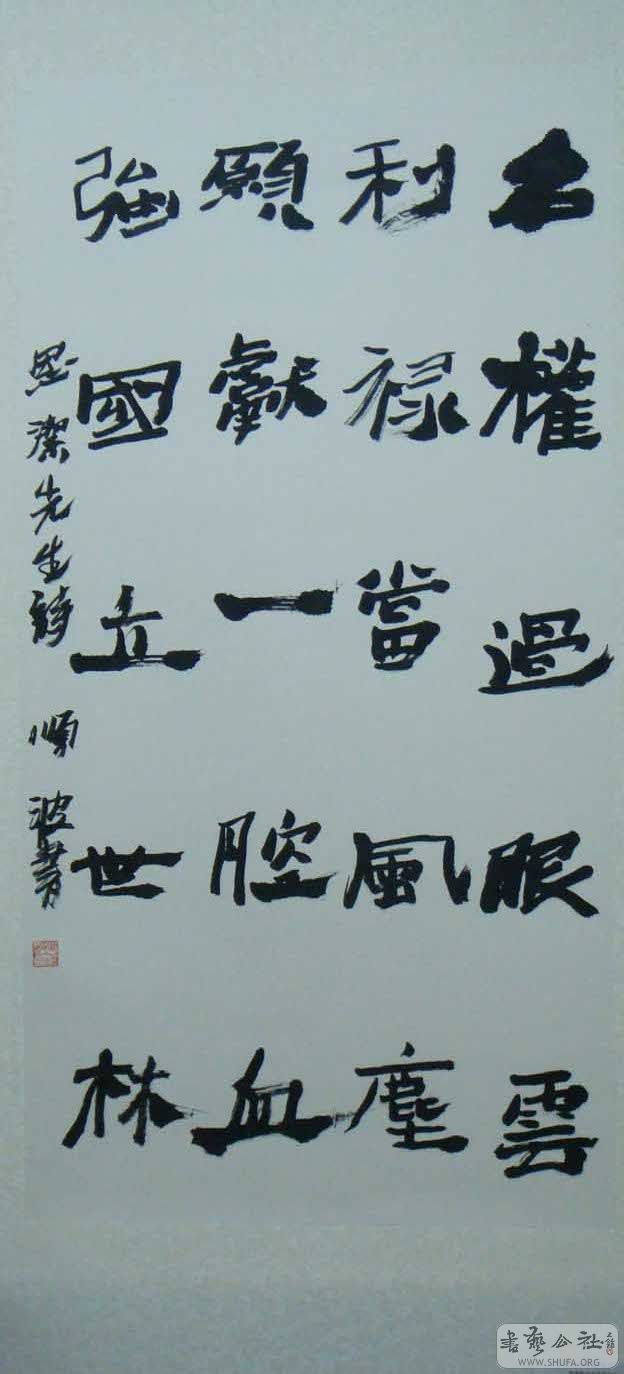 名權過眼雲
利禄當風塵
願獻一腔血
強國立世林
思潔先生詩 順波書
書藝公社
WWW.SHUFA.ORG